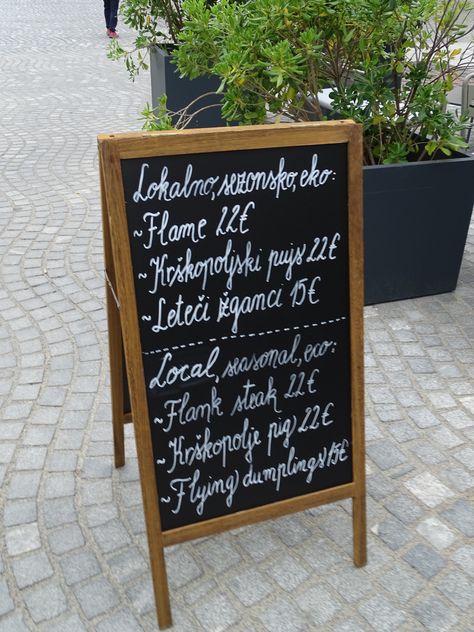 Lokalno, sezonsko, eko:
~Flame 22€
~Krškopoljski pujs 22€
~Leteči žganci 15€
Local, seasonal, eco:
~Flank steak 22€
~Krškopolje pig) 22€
~Flying) dumplings 15€